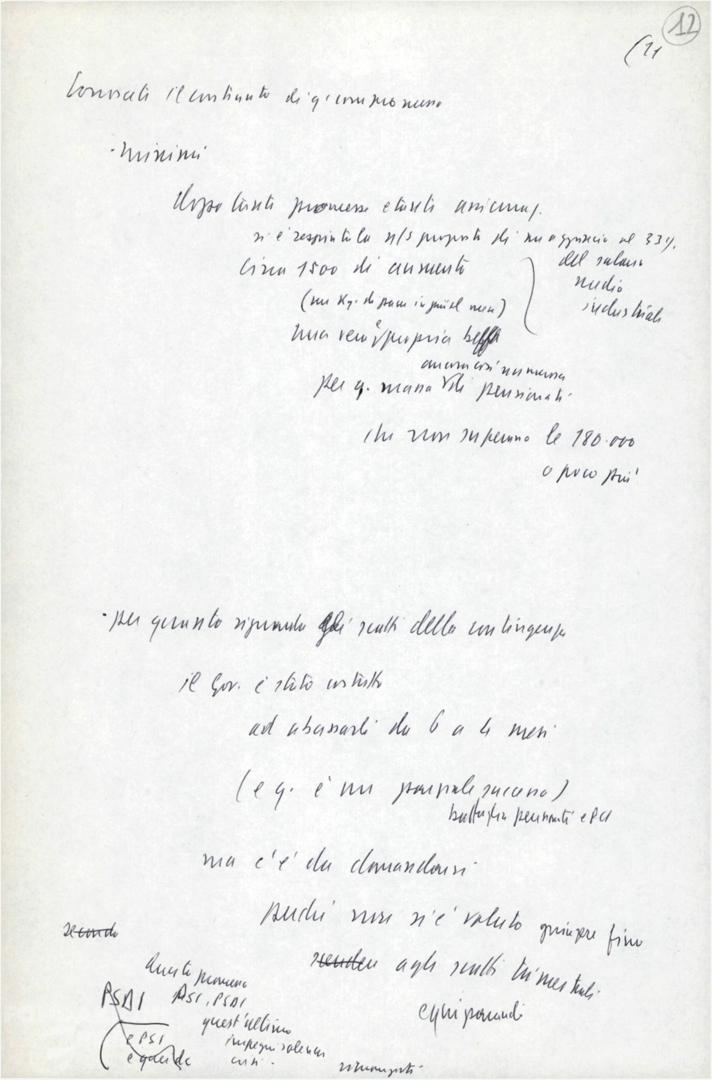 12
(11
il contenuto di q.
- Minimi
dopo tante promesse e tante assicuraz.
si è respinta la n/s proposta di un aggancio al 33%
del salario
medio
industriale
Circa 1500 di aumento
(un Kg. di pane in più al mese)
una vera e propria beffa
ancora così numerosa
per q. massa di pensionati
che non superano le 180.000
o poco più
- per quanto riguarda gli scatti della contingenza
il Gov. è stato costretto
ad abbassarli da 6 a 4 mesi
(e q. è un parziale successo)
battaglia pensionati e PCI
ma c'è da domandarsi
perché non si è voluto giungere fino
agli scatti trimestrali
equiparandi
seconda
Queste promesse
PSDI PSI, PSDI
quest'ultimo
e PSI
impegni solenni
e q
crisi.
rimangiati.